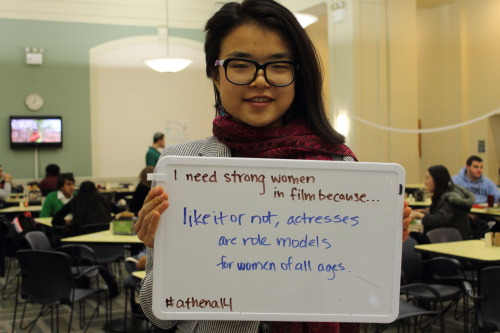 I need strong women
in film because...
like it or not, actresses
are role models
for women of all ages.
#athena14